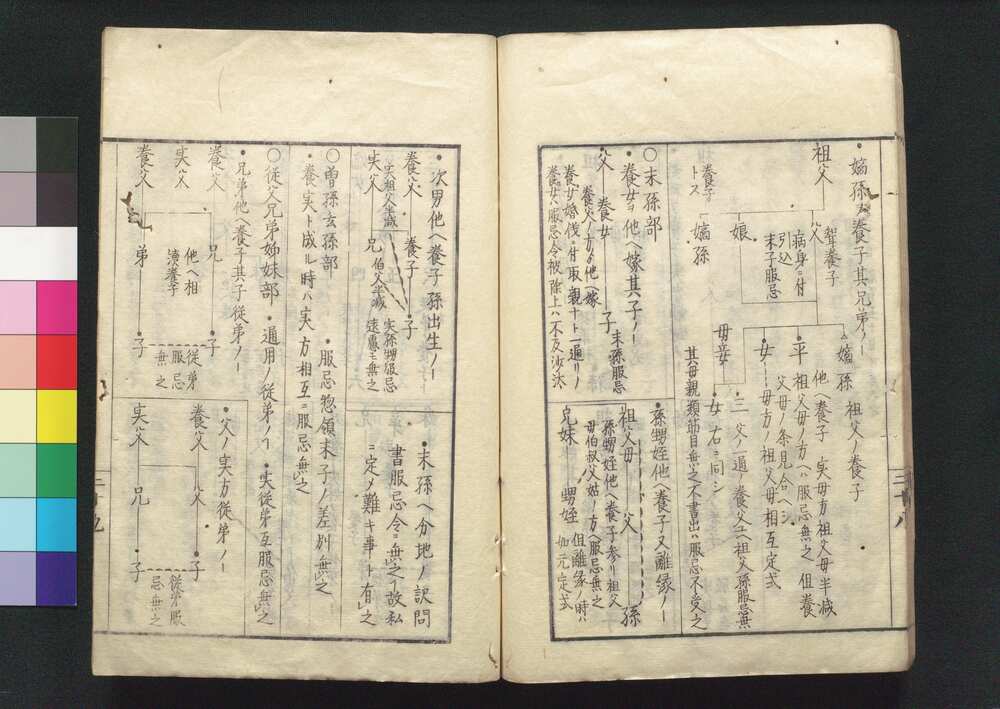 ・嫡孫ヲ養子其兄弟ノー
祖父
父
聟養子
病身ニ付
引込
末子服忌
娘
嫡孫
養子
トス
嫡孫 祖父ノ養子
平 他ヘ養子 実母方祖父母半減
祖父母ノ方ハ服忌無之 但養
父母ノ条見合ヘシ
女 母方ノ祖父母相互定式
三父ノ一通ノ養父エハ祖父孫服忌無
母妾
女 右ニ同シ
其母親類節目無之不書出ハ服忌不受之
〇末孫部
・養女ヲ他ヘ嫁其子ノー
父 養女 子
末孫服忌
養父ノ方ゟ他ヘ嫁
養女婚儀ニ付取親ナト一通リノ
養女ハ服忌令被除上ハ不及沙汰
・孫甥姪他ヘ養子又離縁ノー
祖父母 父 孫
孫甥姪他ヘ養子参リ祖父
母伯叔父姑ノ方ヘ服忌無之
兄妹 甥姪
但離縁ノ時ハ
如元定式
三十八
・次男他ヘ養子孫出生ノー
養父 養子 子
実祖父半減
実父 兄
伯父半減
実孫甥服忌
遠慮モ無之
・末孫ヘ分地ノ訳問
書服忌令ニ無之故私
ニ定メ難キ事ト有之
〇曽孫玄孫部 ・服忌惣領末子ノ差別無之
・養実ト成ル時ハ実方相互ニ服忌無之
〇従父兄弟姉妹部 ・通用ノ従弟ノー ・実従弟互服忌無之
・兄弟他ヘ養子其子従弟ノー
養父 兄 子
実父
他ヘ相
続養子
養父 弟 子
従弟
服忌
無之
・父ノ実方従弟ノー
養父 父 子
実父 兄 子
従弟服
忌無之
三十九